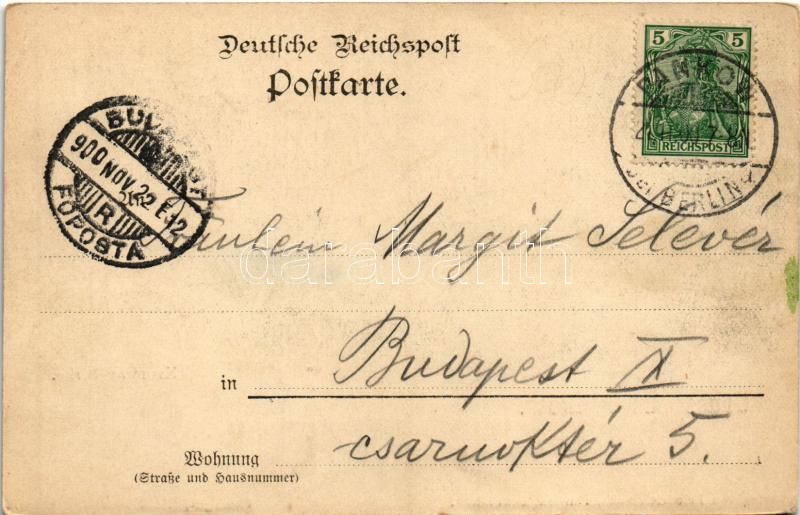 Deutsche Reichspost
Postkarte.
5 5
REICHSPOST
PANKOW
bei BERLIN
BUDAPEST
900 NOV. 22 E. 12
R
FŐPOSTA
Fräulein Margit Selevér
darabanth
in Budapest X
csarnoktér 5.
Wohnung
(Straße und Hausnummer)